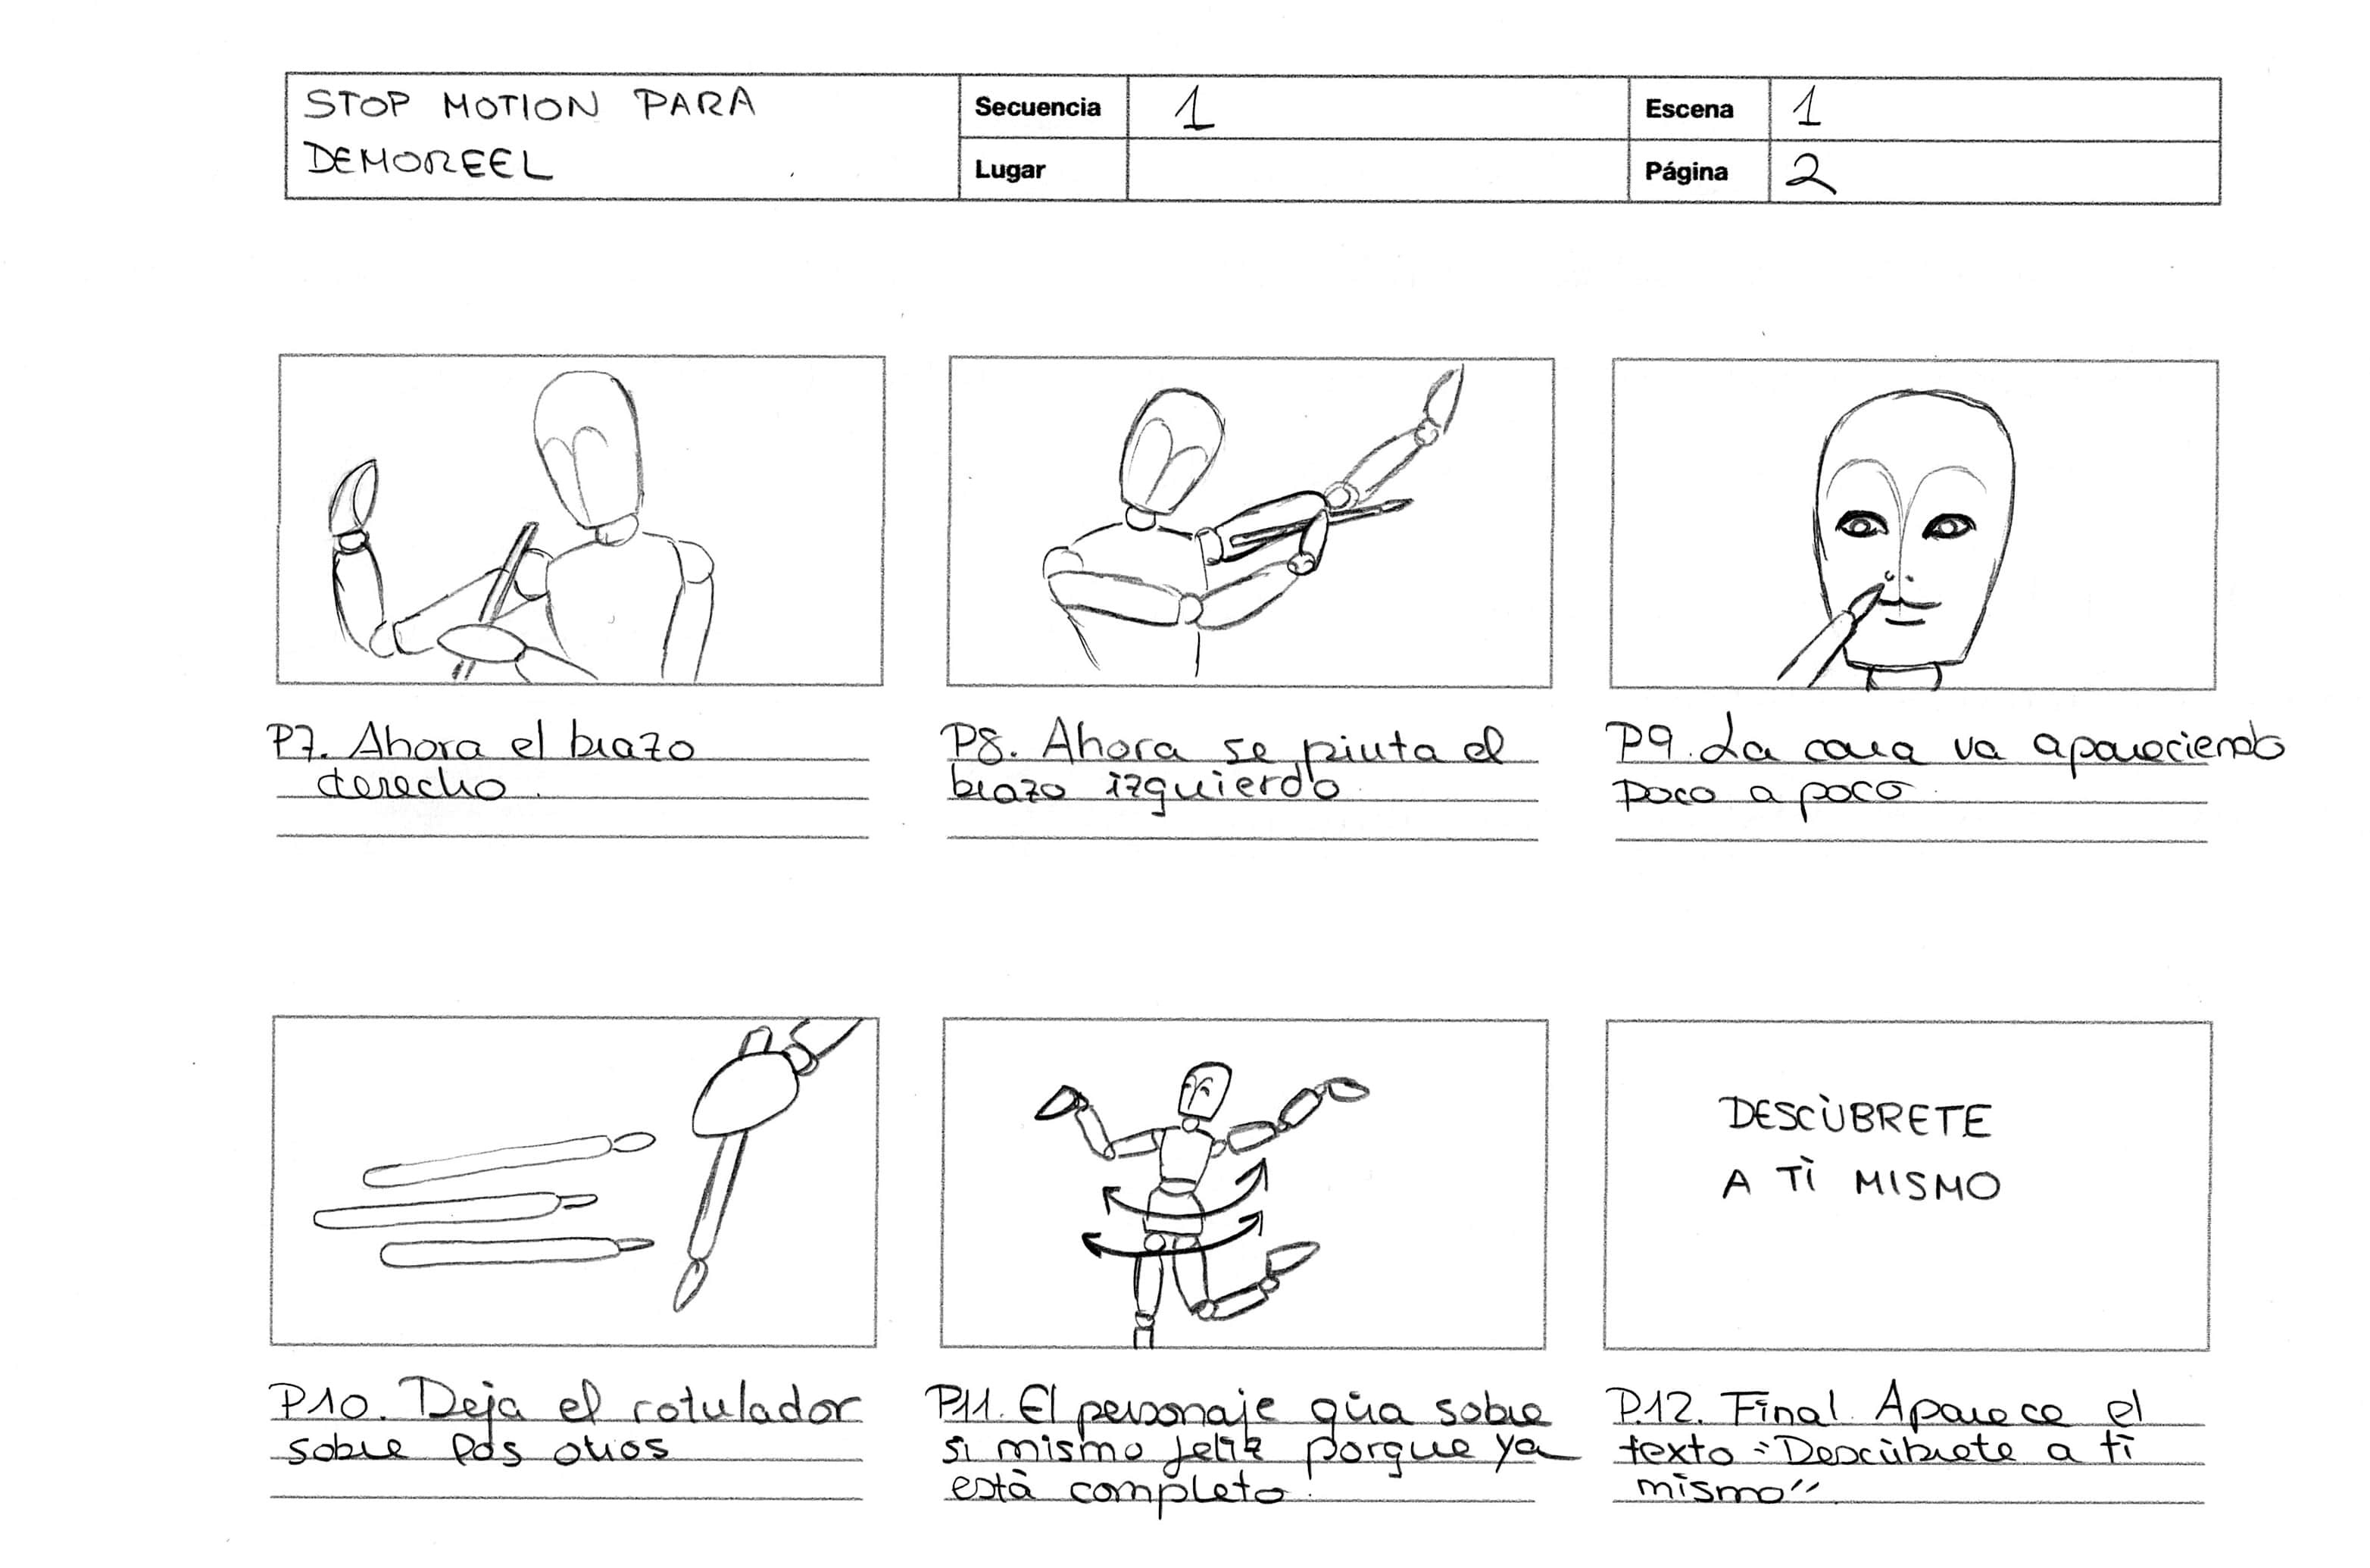 STOP MOTION PARA
DEMOREEL
Secuencia 1
Lugar
Escena 1
Página 2
P7. Ahora el brazo
derecho.
P8. Ahora se pinta el
brazo izquierdo
P9. La cara va apareciendo
poco a poco.
DESCÙBRETE
A TÌ MISMO
P10. Deja el rotulador
sobre los otros
P11. El personaje gira sobre
si mismo feliz porque ya
està completo.
P.12. Final. Aparece el
texto "Descùbrete a tì
mismo"